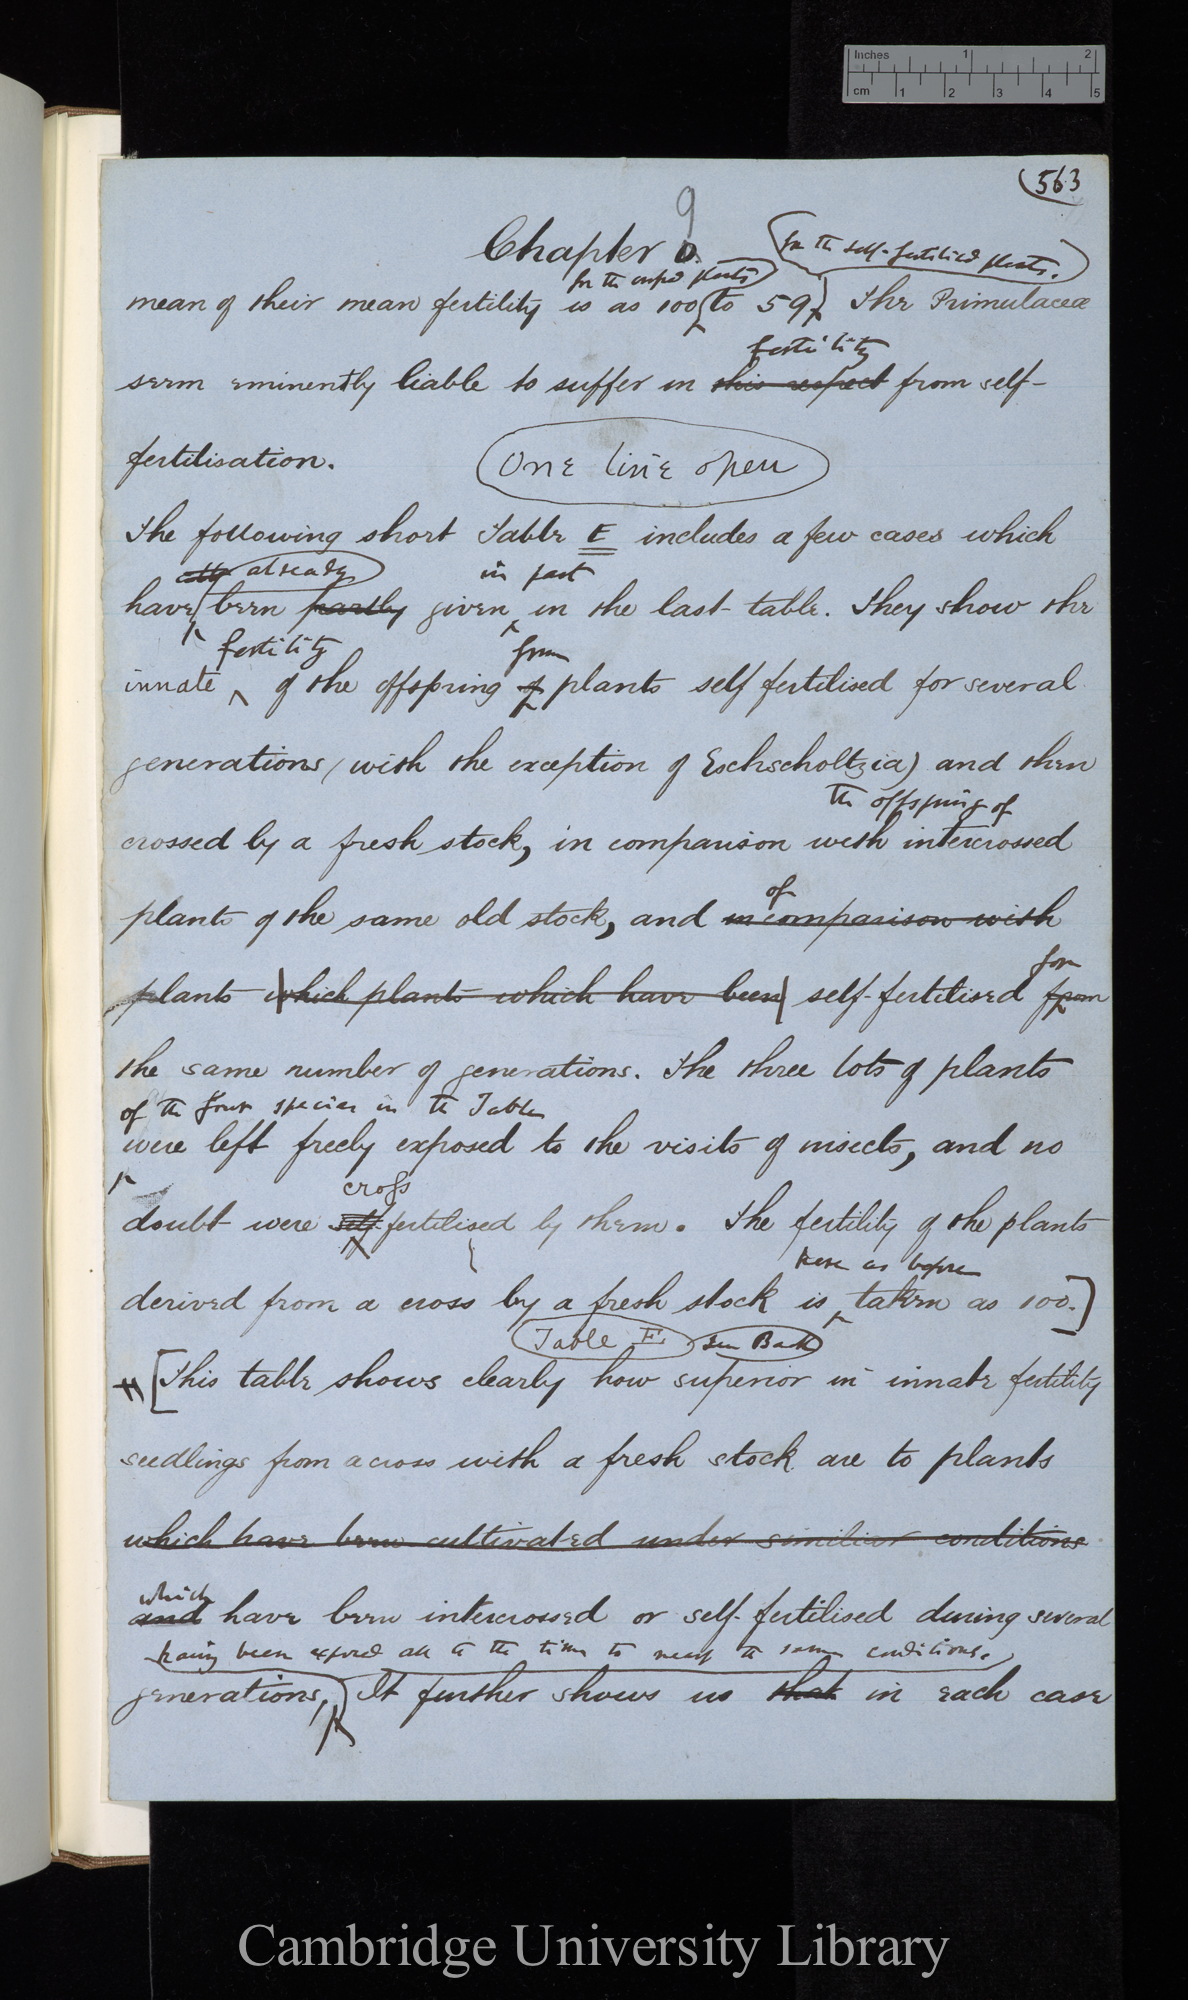 Inches 1 2
cm 1 2 3 4 5
(563
9
Chapter
for the self-fertilised plants.
for the crossed plants
mean of their mean fertility is as 100 to 59. The Primulaceæ
fertility
seem eminently liable to suffer in this respect from self-
fertilisation.
One line open
The following short Table E includes a few cases which
already in part
have been partly given in the last table. They show the
fertility from
innate of the offspring of plants self fertilised for several
generations (with the exception of Eschscholtzia) and then
the offspring of
crossed by a fresh stock, in comparison with intercrossed
of
plants of the same old stock, and in comparison with
for
plants which plants which have been self-fertilised from
the same number of generations. The three lots of plants
of the four species in the Table
were left freely exposed to the visits of insects, and no
cross
doubt were self fertilised by them. The fertility of the plants
here as before
derived from a cross by a fresh stock is taken as 100.]
Table E. see Back
[This table shows clearly how superior in innate fertility
seedlings from a cross with a fresh stock are to plants
which have been cultivated under similiar conditions
which
and have been intercrossed or self-fertilised during several
having been exposed all the time to nearly the same conditions.
generations, It further shows us that in each case
Cambridge University Library